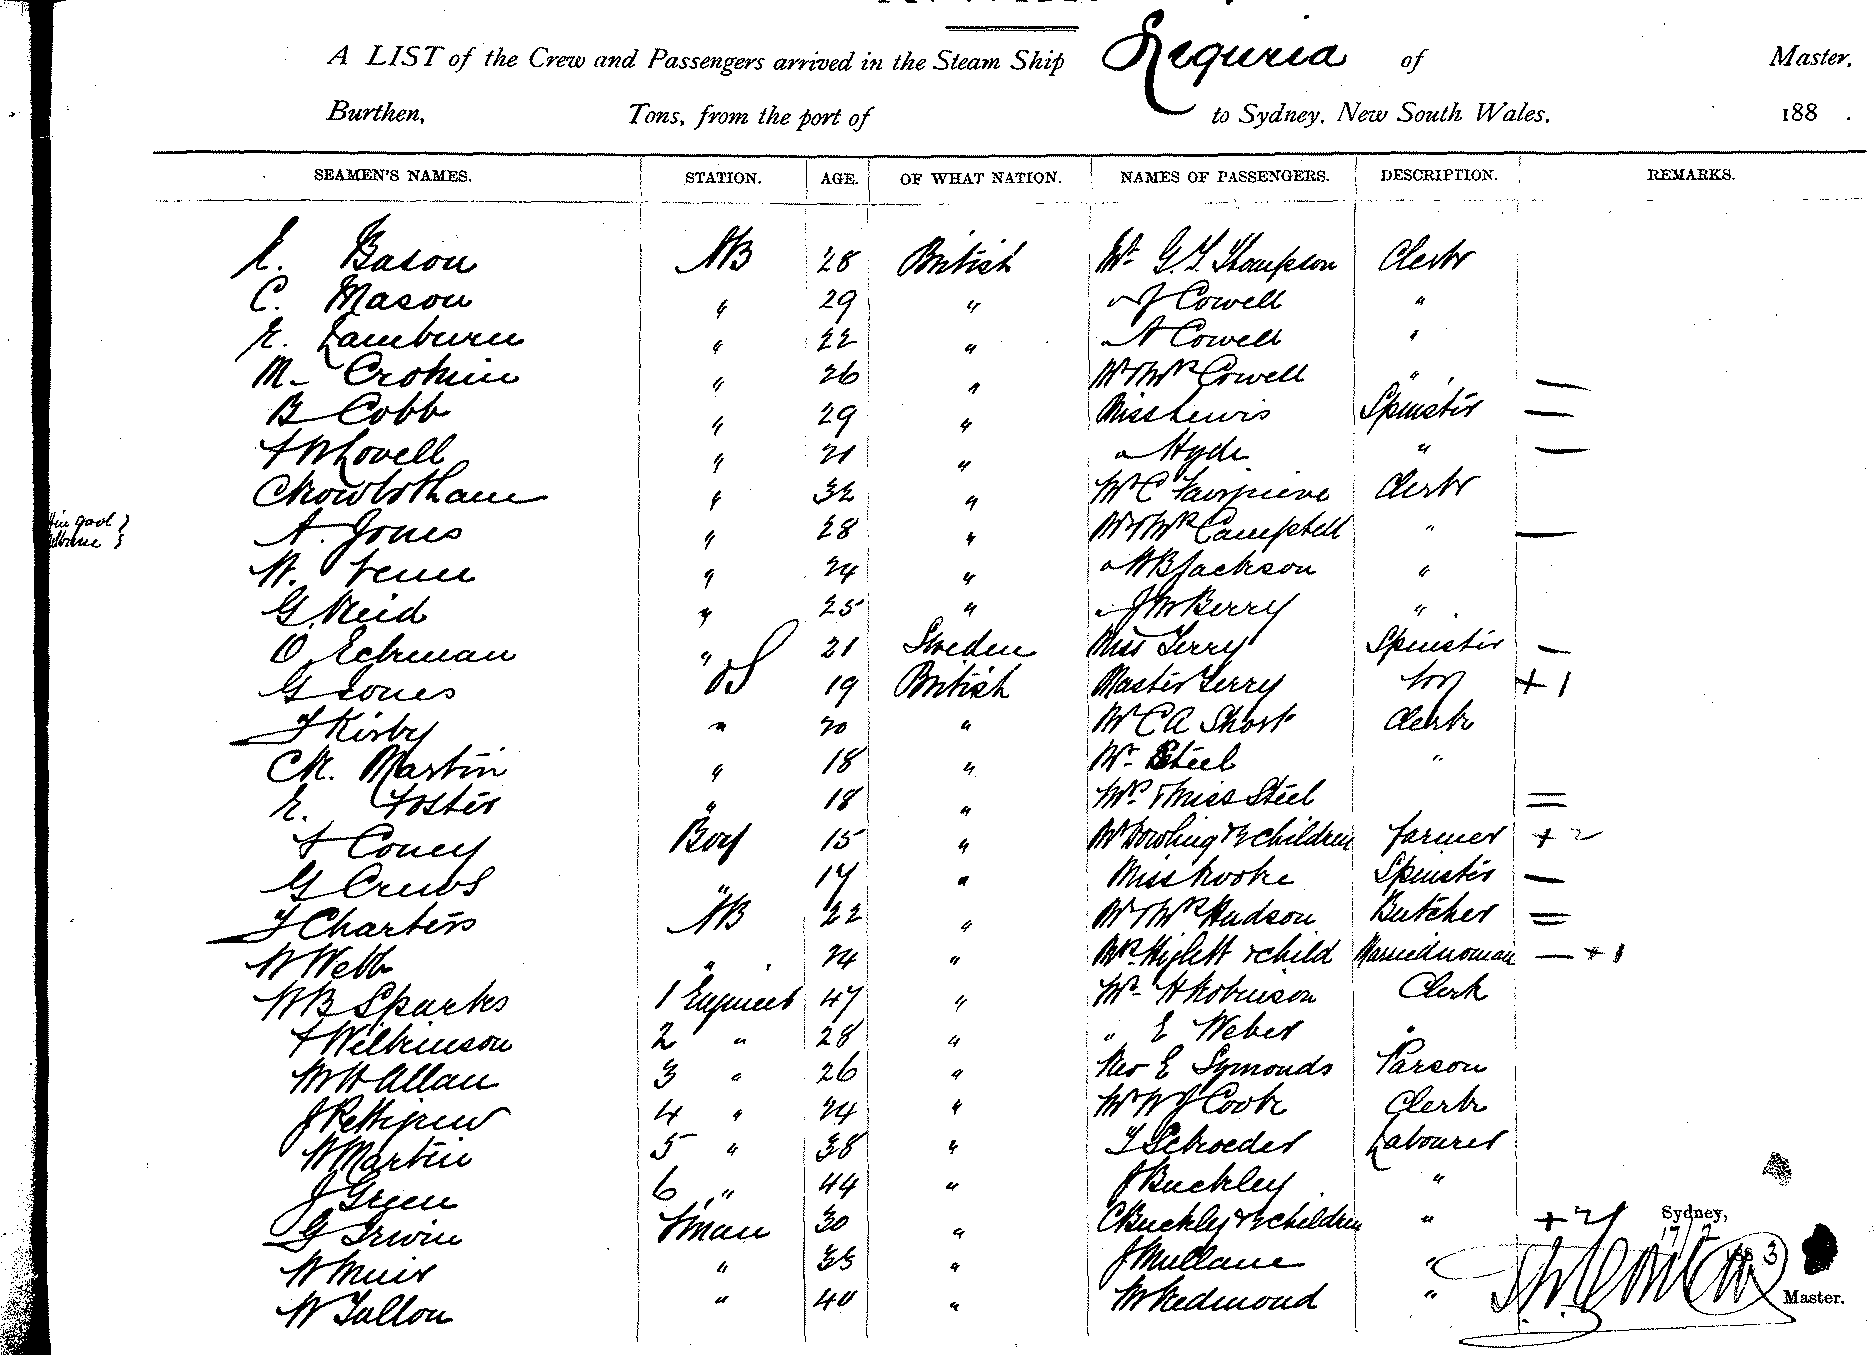 A LIST of the Crew and Passengers arrived in the Steam Ship Liguria of Master,
Burthen, Tons, from the port of to Sydney, New South Wales, 188 .
SEAMEN'S NAMES. STATION. AGE. OF WHAT NATION. NAMES OF PASSENGERS. DESCRIPTION. REMARKS.
E. Bason AB 28 British Mr G. F. Thompson Clerk
C. Mason " 29 " " J Cowell "
E. Lamburn " 22 " " A Cowell "
M. " 26 " Mr & Mrs Cowell " —
B Cobb " 29 " Miss Lewis Spinster —
F W Lovell " 21 " " Hyde " —
C Rowbotham " 32 " Mr C Fairgrieve Clerk
A. Jones " 28 " Mr & Mrs Campbell " —
W. Venn " 24 " " W B Jackson "
G Reid " 25 " " J M Berry "
O. Eckman " 21 Sweden Miss Terry Spinster —
G Jones OS 19 British Master Terry Boy + 1
F Kirby " 20 " Mr C A Short Clerk
C R. Martin " 18 " Mr Steel "
E. Foster " 18 " Mrs & Miss Steel =
F Coney Boy 15 " Mr Dowling & 2 children farmer + 2
G Crews " 17 " Miss Rooke Spinster —
F Charters AB 22 " Mr & Mrs Hudson Butcher =
W Webb " 24 " Mrs Higlett & child Married woman — + 1
W B Sparks 1 Engineer 47 " Mr H Robinson Clerk
F Wilkinson 2 " 28 " " E Weber "
W H Allan 3 " 26 " Rev E Symonds Parson
J Pettigrew 4 " 24 " Mr W J Cook Clerk
W Martin 5 " 38 " F Schroeder Labourer
J Green 6 " 44 " J Buckley "
G Irwin Fman 30 " C Buckley & 2 children " + 2
W Muir " 33 " J Mullane "
W Tallon " 40 " W Redmond "
Sydney,
Master.